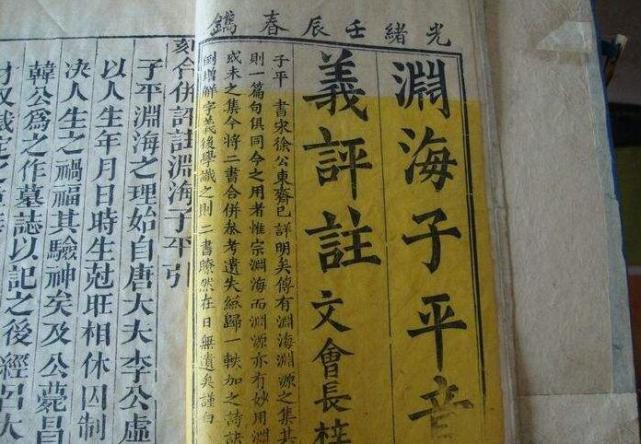 光緒壬辰春鐫
淵海子平音
義評註 文會長梓
子平 書宋徐公東齋已詳明矣傳有淵海淵源之集其
則一篇句俱同今之用者惟宗淵海而淵源亦有妙用淵
或未之集今將二書合併參考遺失綜歸一帙加之詩訣
增解字義後學識之則二書瞭然在目無遺矣謹白
刻合併評註淵海子平引
子平淵海之理始自唐大夫李公虛
以人生年月日時生尅旺相休囚制
決人生之禍福其驗神矣及公薨昌
韓公爲之作墓誌以記之後經呂大